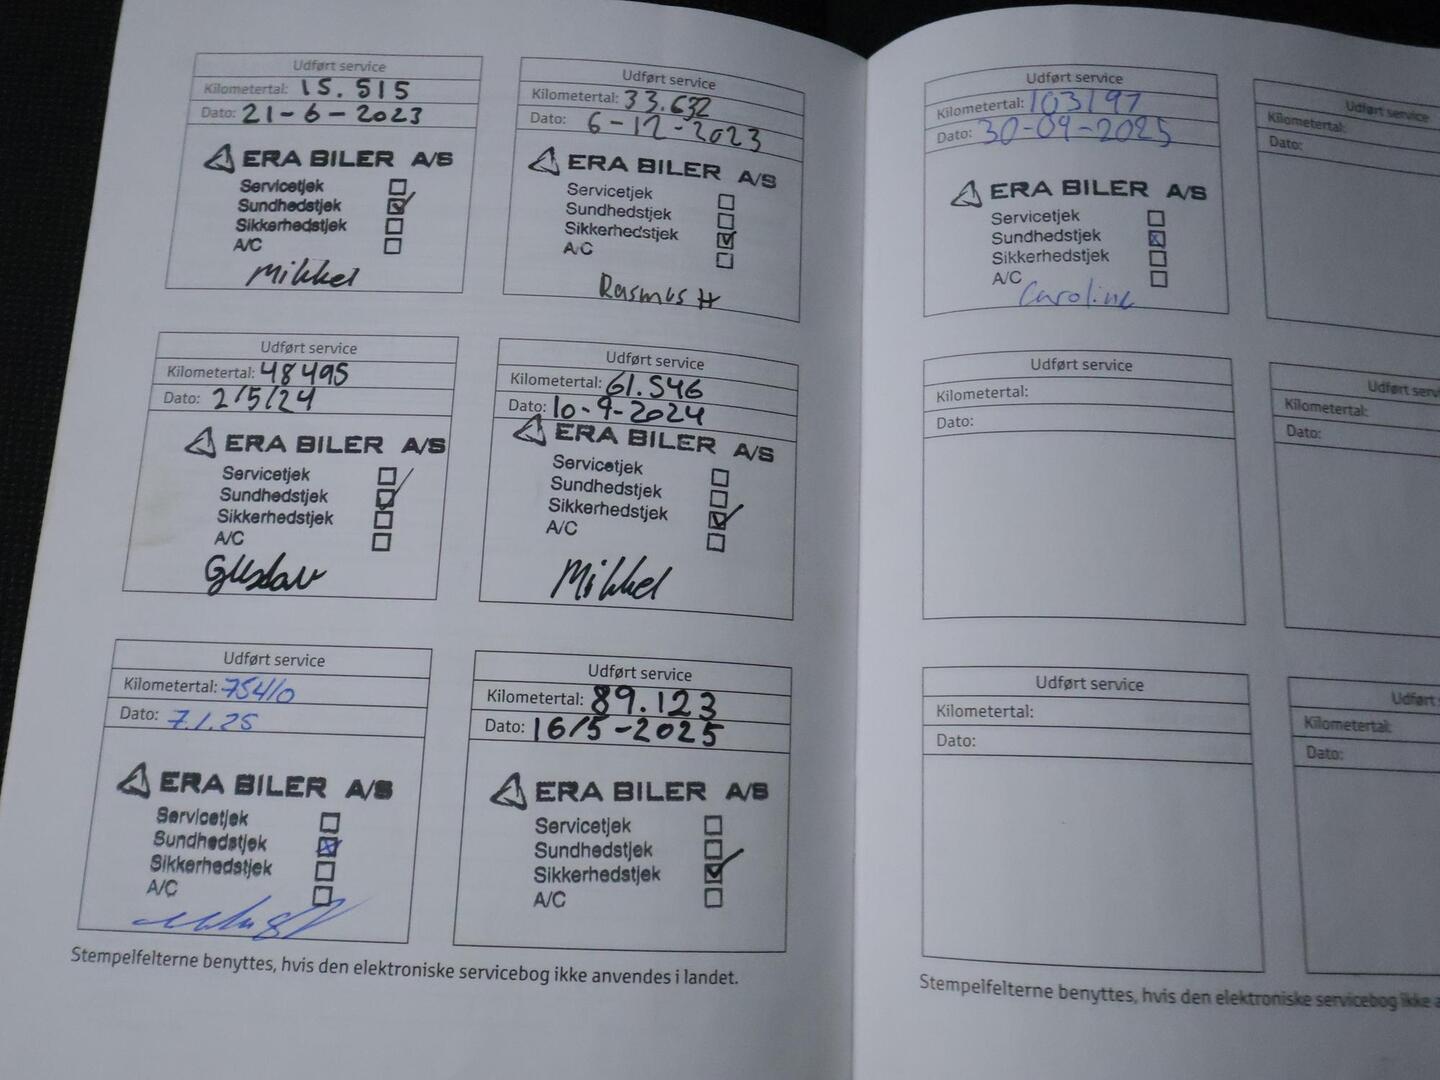 Udført service
Kilometertal: 15.515
Dato: 21-6-2023
ERA BILER A/S
Servicetjek
Sundhedstjek
Sikkerhedstjek
A/C
Mikkel
Udført service
Kilometertal: 33.632
Dato: 6-12-2023
ERA BILER A/S
Servicetjek
Sundhedstjek
Sikkerhedstjek
A/C
Rasmus H
Udført service
Kilometertal: 48495
Dato: 2/5/24
ERA BILER A/S
Servicetjek
Sundhedstjek
Sikkerhedstjek
A/C
Gustav
Udført service
Kilometertal: 61.546
Dato: 10-9-2024
ERA BILER A/S
Servicetjek
Sundhedstjek
Sikkerhedstjek
A/C
Mikkel
Udført service
Kilometertal: 75410
Dato: 7.1.25
ERA BILER A/S
Servicetjek
Sundhedstjek
Sikkerhedstjek
A/C
Udført service
Kilometertal: 89.123
Dato: 16/5-2025
ERA BILER A/S
Servicetjek
Sundhedstjek
Sikkerhedstjek
A/C
Stempelfelterne benyttes, hvis den elektroniske servicebog ikke anvendes i landet.
Udført service
Kilometertal: 103197
Dato: 30-09-2025
ERA BILER A/S
Servicetjek
Sundhedstjek
Sikkerhedstjek
A/C
Caroline
Udført service
Kilometertal:
Dato:
Udført service
Kilometertal:
Dato:
Udført serv
Kilometertal:
Dato:
Udført service
Kilometertal:
Dato:
Udført
Kilometertal:
Dato:
Stempelfelterne benyttes, hvis den elektroniske servicebog ikke